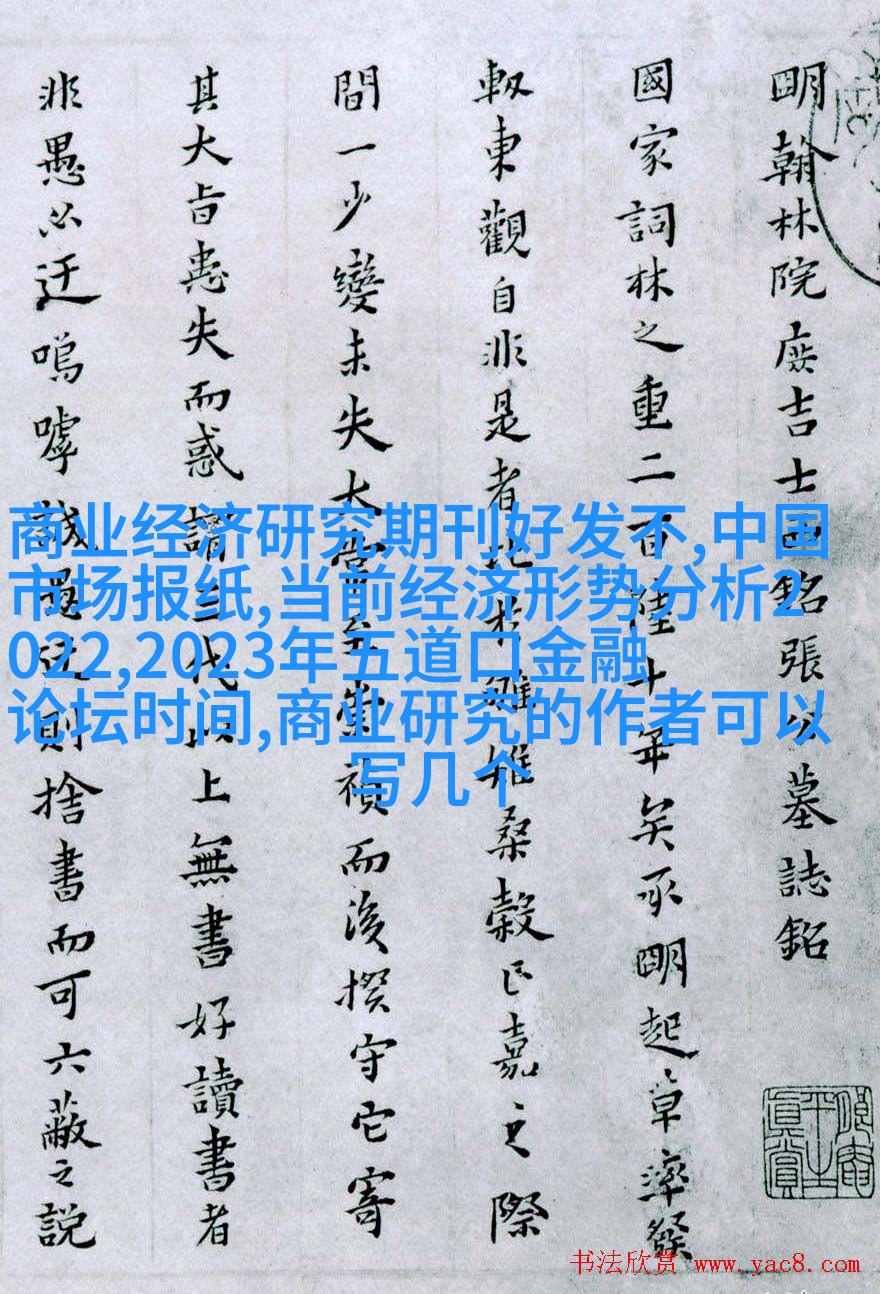 明翰林院庶吉士西銘張公墓誌銘
國家詞林之重二百陸十年矣承明起草率發
軔東觀自非是者比於雛雉桑穀正嘉之際
間一少變未失大當至崇禎而後揆守它寄
其大旨患失而惑謂三代以上無書好讀書者
非愚必迂嗚嘑誠愚迂則捨書而可六蔽之説
商业经济研究期刊好发不,中国
市场报纸,当前经济形势分析2
022,2023年五道口金融
论坛时间,商业研究的作者可以
写几个
书法欣赏 www.yac8.com